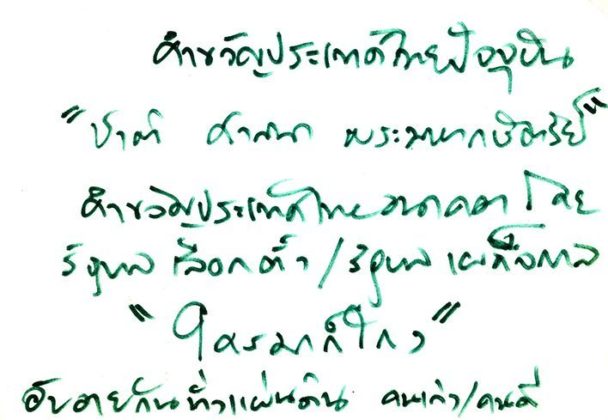 คำขวัญประเทศไทยปัจจุบัน
"ชาติ ศาสนา พระมหากษัตริย์"
คำขวัญประเทศไทยอนาคต โดย
รัฐบาลเลือกตั้ง/รัฐบาลเผด็จการ
"ใครมาก็โกง"
อับอายกันทั่วแผ่นดิน คนเก่า/คนดี